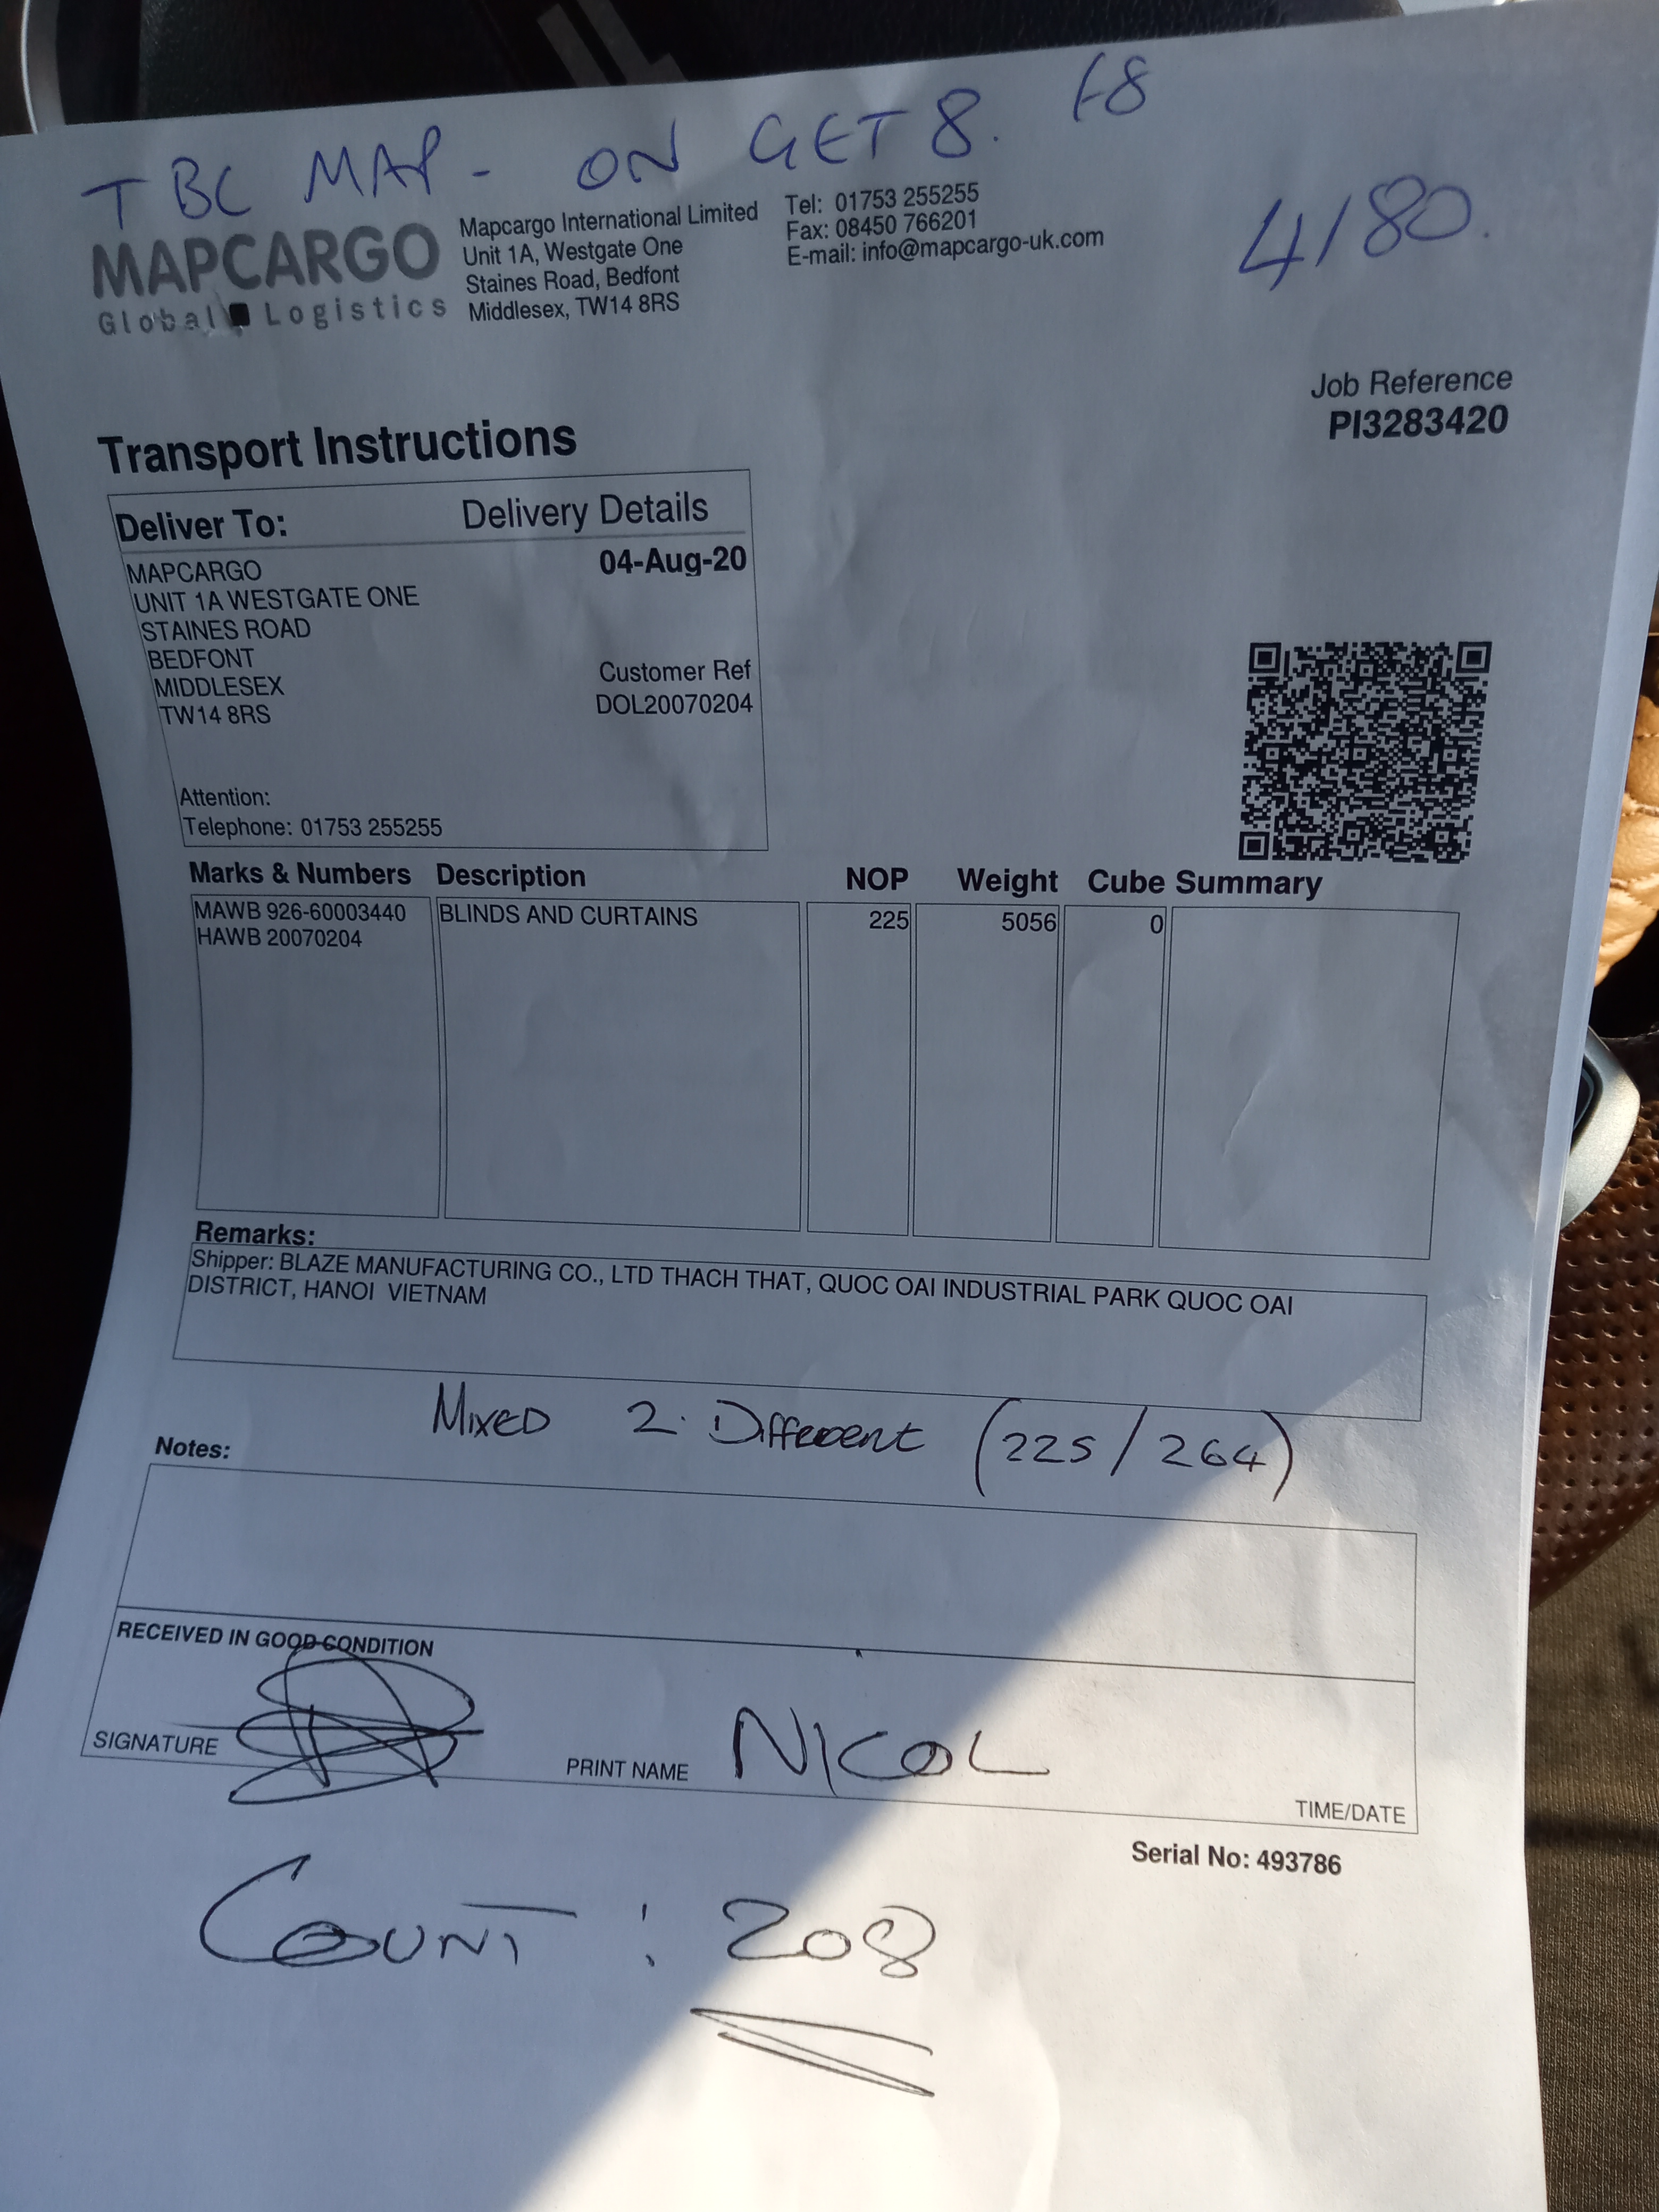 TBC MAP - ON GET 8. F8
4/80.
MAPCARGO
Global Logistics
Mapcargo International Limited
Unit 1A, Westgate One
Staines Road, Bedfont
Middlesex, TW14 8RS
Tel: 01753 255255
Fax: 08450 766201
E-mail: info@mapcargo-uk.com
Job Reference
PI3283420
Transport Instructions
Deliver To: Delivery Details
MAPCARGO 04-Aug-20
UNIT 1A WESTGATE ONE
STAINES ROAD
BEDFONT
MIDDLESEX Customer Ref
TW14 8RS DOL20070204
Attention:
Telephone: 01753 255255
Marks & Numbers Description NOP Weight Cube Summary
MAWB 926-60003440 BLINDS AND CURTAINS 225 5056 0
HAWB 20070204
Remarks:
Shipper: BLAZE MANUFACTURING CO., LTD THACH THAT, QUOC OAI INDUSTRIAL PARK QUOC OAI
DISTRICT, HANOI VIETNAM
Mixed 2 Different (225/264)
Notes:
RECEIVED IN GOOD CONDITION
SIGNATURE PRINT NAME NICOL TIME/DATE
Serial No: 493786
COUNT : 208